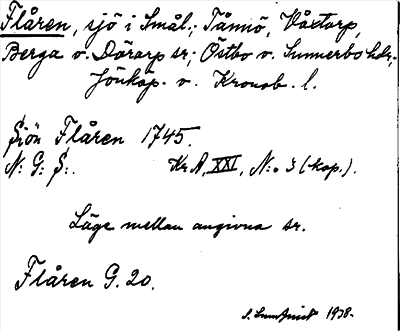 Flåren, sjö i Smål.; Tånnö, Våxtorp,
Berga o. Dörarp sr; Östbo o. Sunnerbo hdr;
Jönköp. o. Kronob. l.
Sjön Flåren 1745.
N: G: S:. Kr A, XXI, N:o 3 (kop.).
Läge mellan angivna sr.
Flåren G. 20.
1938.